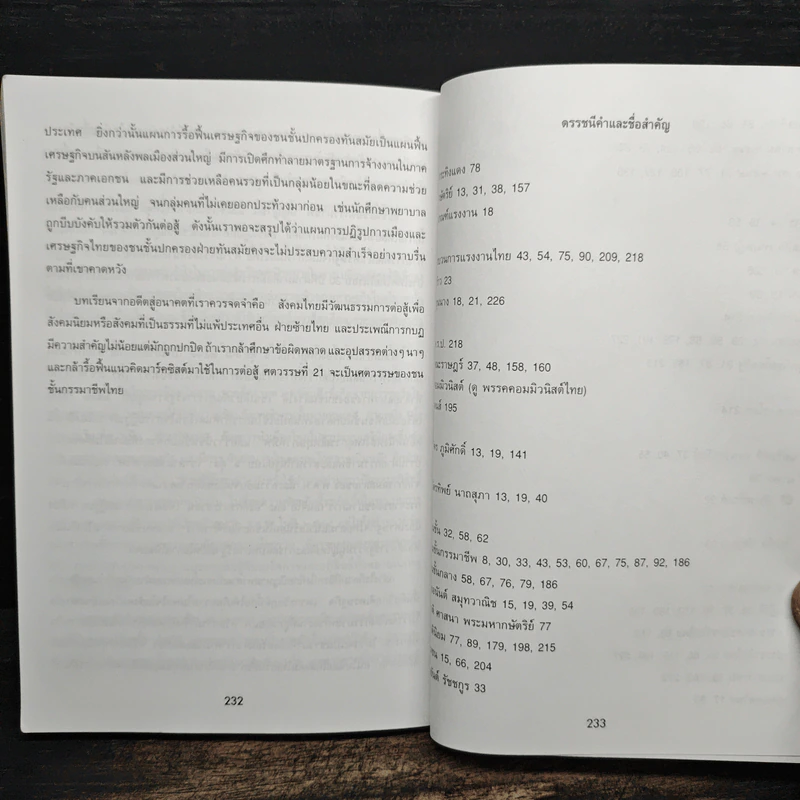 ประเทศ ยิ่งกว่านั้นแผนการรื้อฟื้นเศรษฐกิจของชนชั้นปกครองทันสมัยเป็นแผนฟื้น
เศรษฐกิจบนสันหลังพลเมืองส่วนใหญ่ มีการเปิดศึกทำลายมาตรฐานการจ้างงานในภาค
รัฐและภาคเอกชน และมีการช่วยเหลือคนรวยที่เป็นกลุ่มน้อยในขณะที่ลดความช่วย
เหลือกับคนส่วนใหญ่ จนกลุ่มคนที่ไม่เคยออกประท้วงมาก่อน เช่นนักศึกษาพยาบาล
ถูกบีบบังคับให้รวมตัวกันต่อสู้ ดังนั้นเราพอจะสรุปได้ว่าแผนการปฏิรูปการเมืองและ
เศรษฐกิจไทยของชนชั้นปกครองฝ่ายทันสมัยคงจะไม่ประสบความสำเร็จอย่างราบรื่น
ตามที่เขาคาดหวัง
บทเรียนจากอดีตสู่อนาคตที่เราควรจดจำคือ สังคมไทยมีวัฒนธรรมการต่อสู้เพื่อ
สังคมนิยมหรือสังคมที่เป็นธรรมที่ไม่แพ้ประเทศอื่น ฝ่ายซ้ายไทย และประเพณีการกบฏ
มีความสำคัญไม่น้อยแต่มักถูกปกปิด ถ้าเรากล้าศึกษาข้อผิดพลาด และอุปสรรคต่างๆ นาๆ
และกล้ารื้อฟื้นแนวคิดมาร์คซิสต์มาใช้ในการต่อสู้ ศตวรรษที่ 21 จะเป็นศตวรรษของชน
ชั้นกรรมาชีพไทย
232
ดรรชนีคำและชื่อสำคัญ
ะทิงแดง 78
13, 31, 38, 157
18
บวนการแรงงานไทย 43, 54, 75, 90, 209, 218
23
18, 21, 226
218
ะราษฎร์ 37, 48, 158, 160
อมมิวนิสต์ (ดู พรรคคอมมิวนิสต์ไทย)
195
ภูมิศักดิ์ 13, 19, 141
รทิพย์ นาถสุภา 13, 19, 40
ชั้น 32, 58, 62
ชั้นกรรมาชีพ 8, 30, 33, 43, 53, 60, 67, 75, 87, 92, 186
ชั้นกลาง 58, 67, 76, 79, 186
อนันต์ สมุทวาณิช 15, 19, 39, 54
ศาสนา พระมหากษัตริย์ 77
นิยม 77, 89, 179, 198, 215
ชน 15, 66, 204
รัชชกูร 33
233